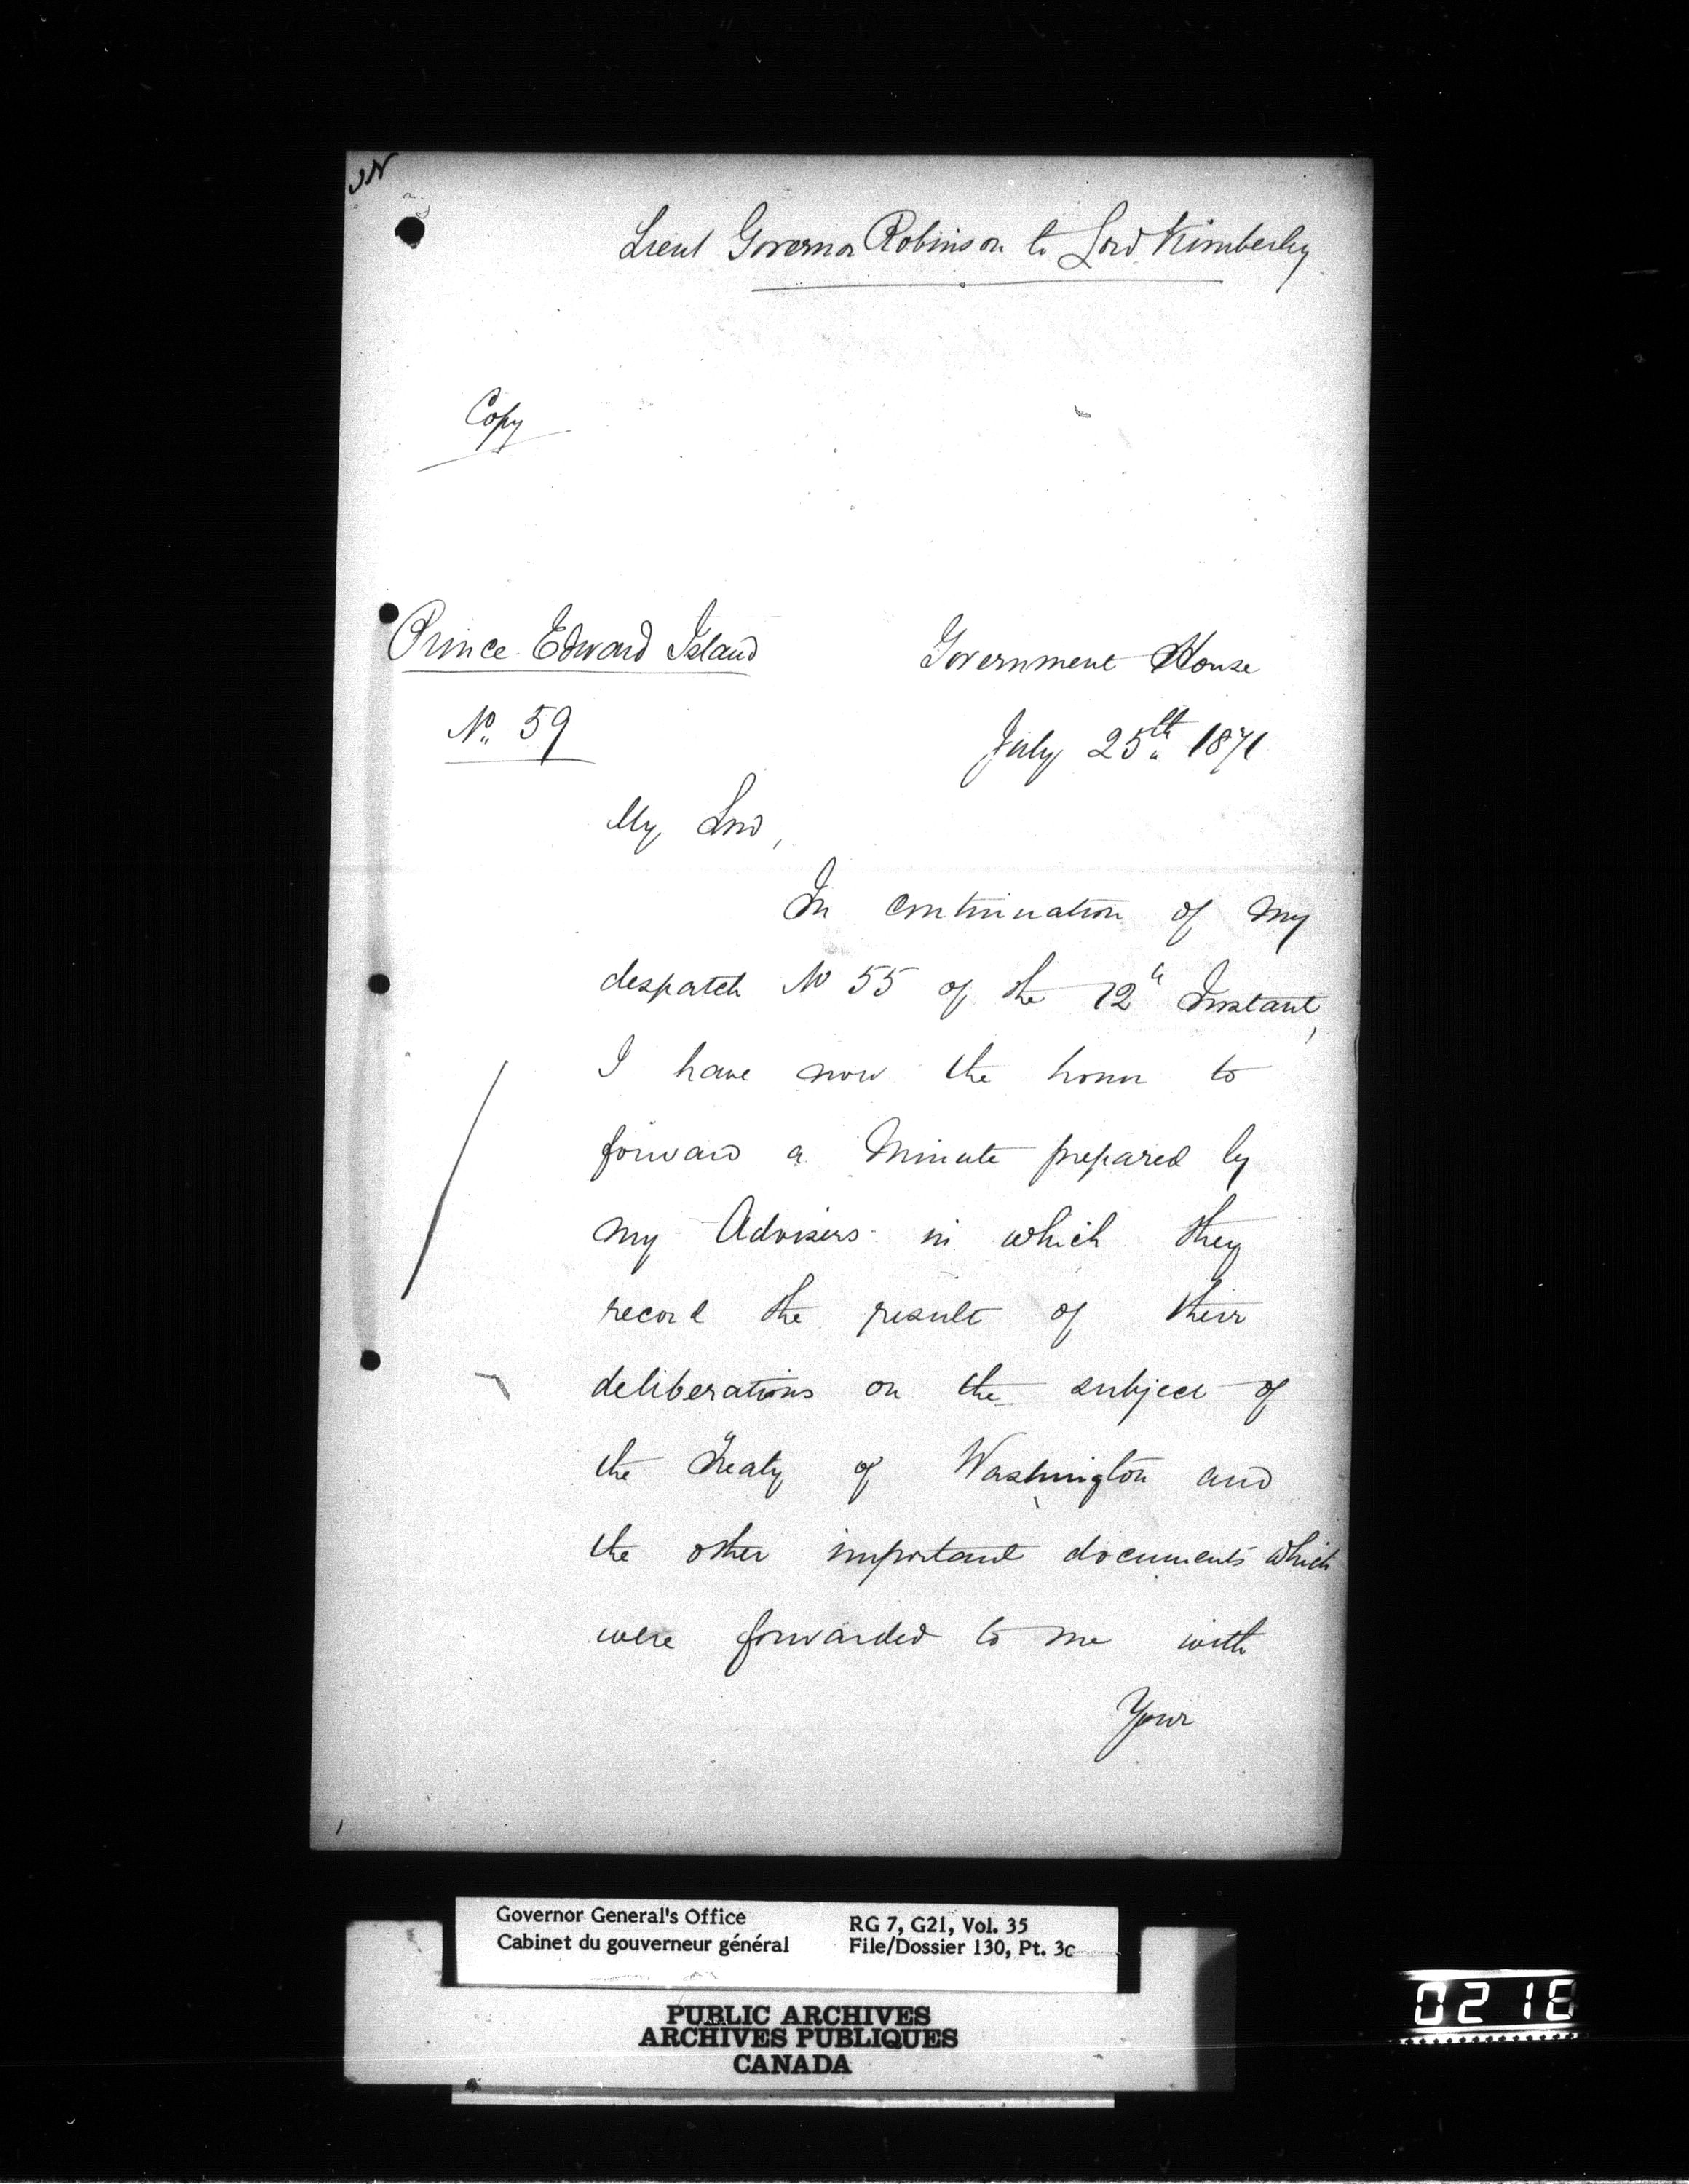 Lieut Governor Robinson to Lord Kimberley
Copy
Prince Edward Island
Government House
No. 59
July 25th 1871
My Lord,
In continuation of my
despatch No 55 of the 12h Instant,
I have now the honor to
forward a Minute prepared by
my Advisers in which they
record the result of their
deliberations on the subject of
the Treaty of Washington and
the other important documents which
were forwarded to me with
Your
Governor General's Office
Cabinet du gouverneur général
RG 7, G21, Vol. 35
File/Dossier 130, Pt. 3c
PUBLIC ARCHIVES
ARCHIVES PUBLIQUES
CANADA